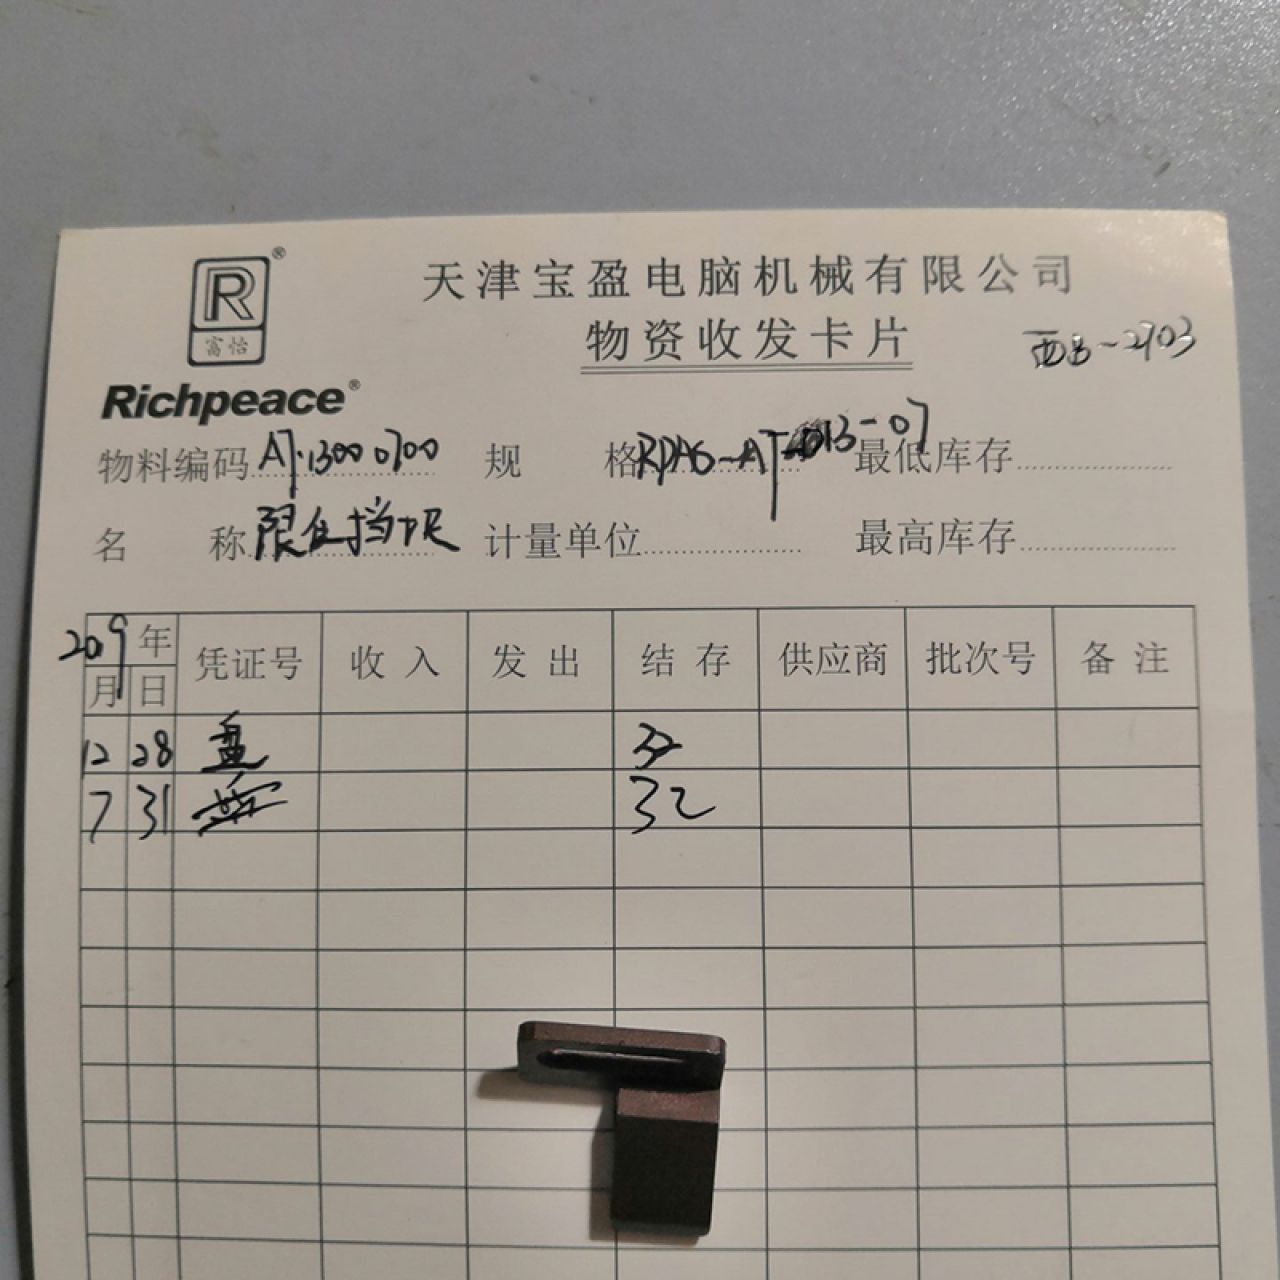 R
富怡
Richpeace
天津宝盈电脑机械有限公司
物资收发卡片
西B-2703
物料编码 AJ.13000700 规格 RPAS-AJ-D13-07 最低库存
名称 限位挡板 计量单位 最高库存
2019年
月 日 凭证号 收入 发出 结存 供应商 批次号 备注
12 28 盘 32
7 31 盘 32